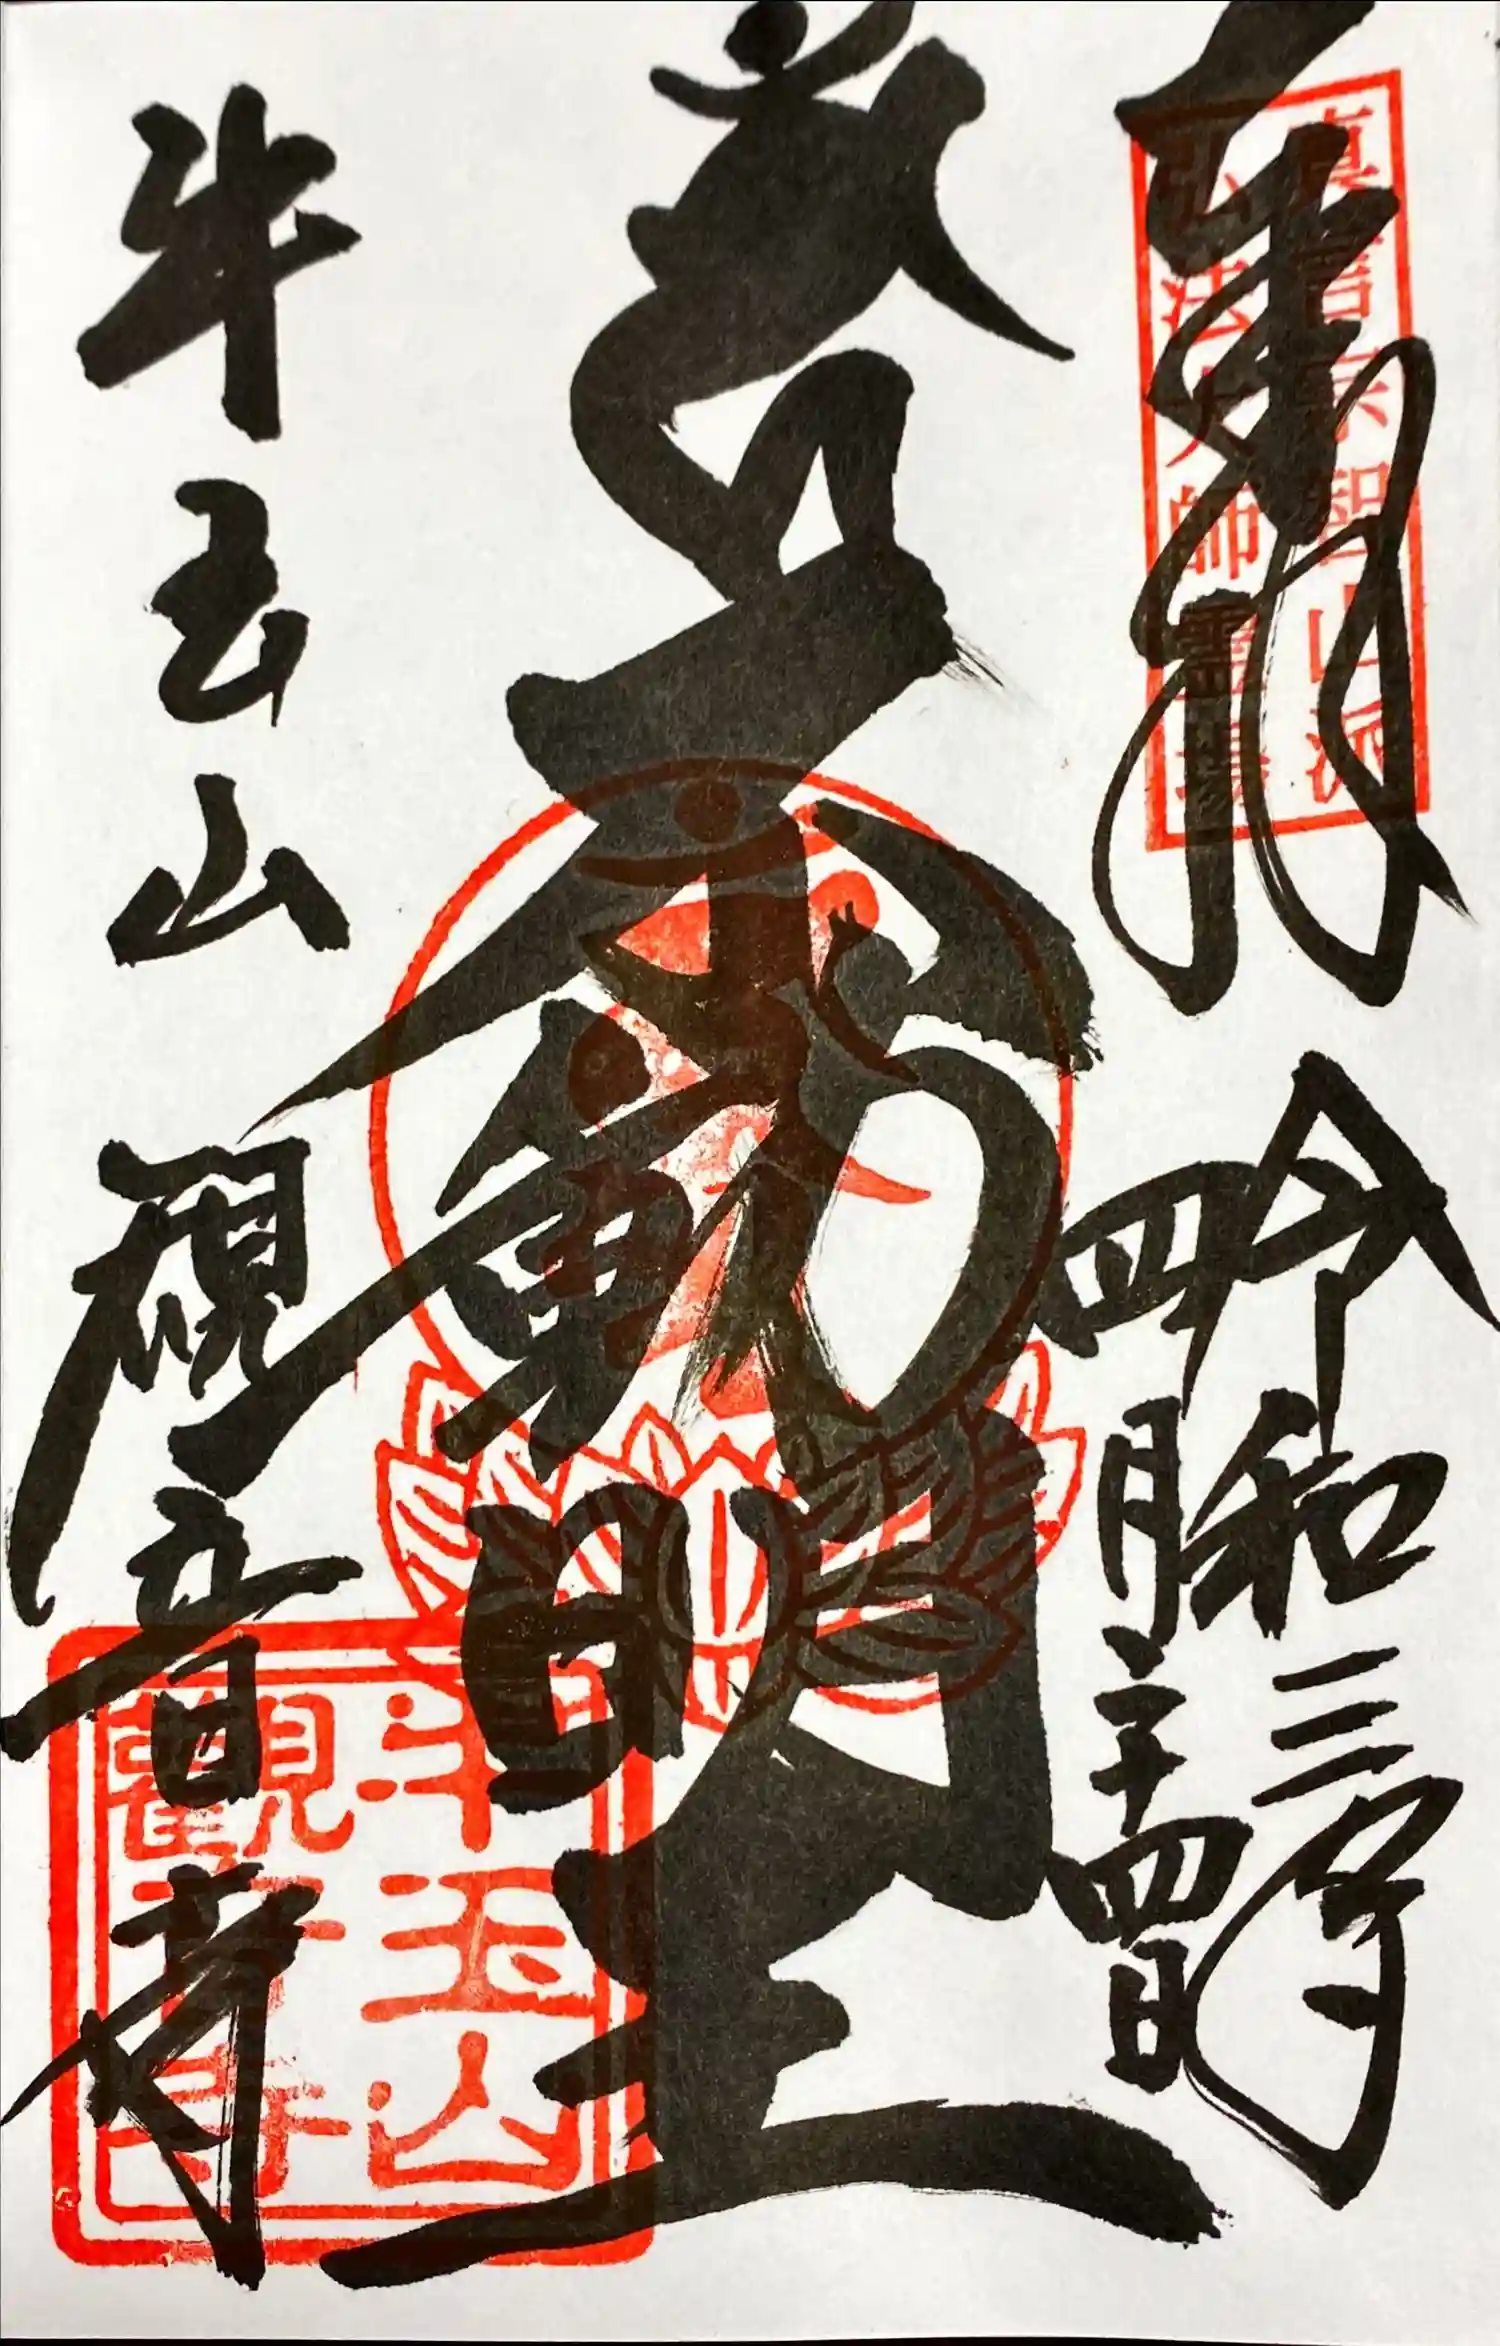 奉拝
令和三年
四月二十四日
真言宗智山派
弘法大師霊場
不動明王
牛玉山
観音寺
牛玉山
觀音寺